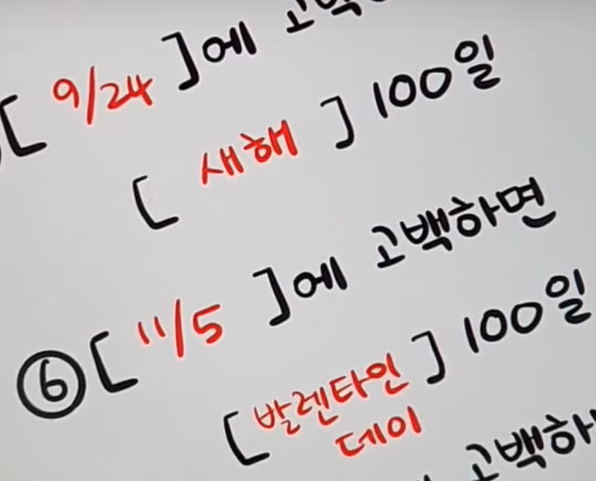 [ 9/24 ]에 고백
[ 새해 ] 100일
⑥ [ 11/5 ]에 고백하면
[ 발렌타인 데이 ] 100일
고백하